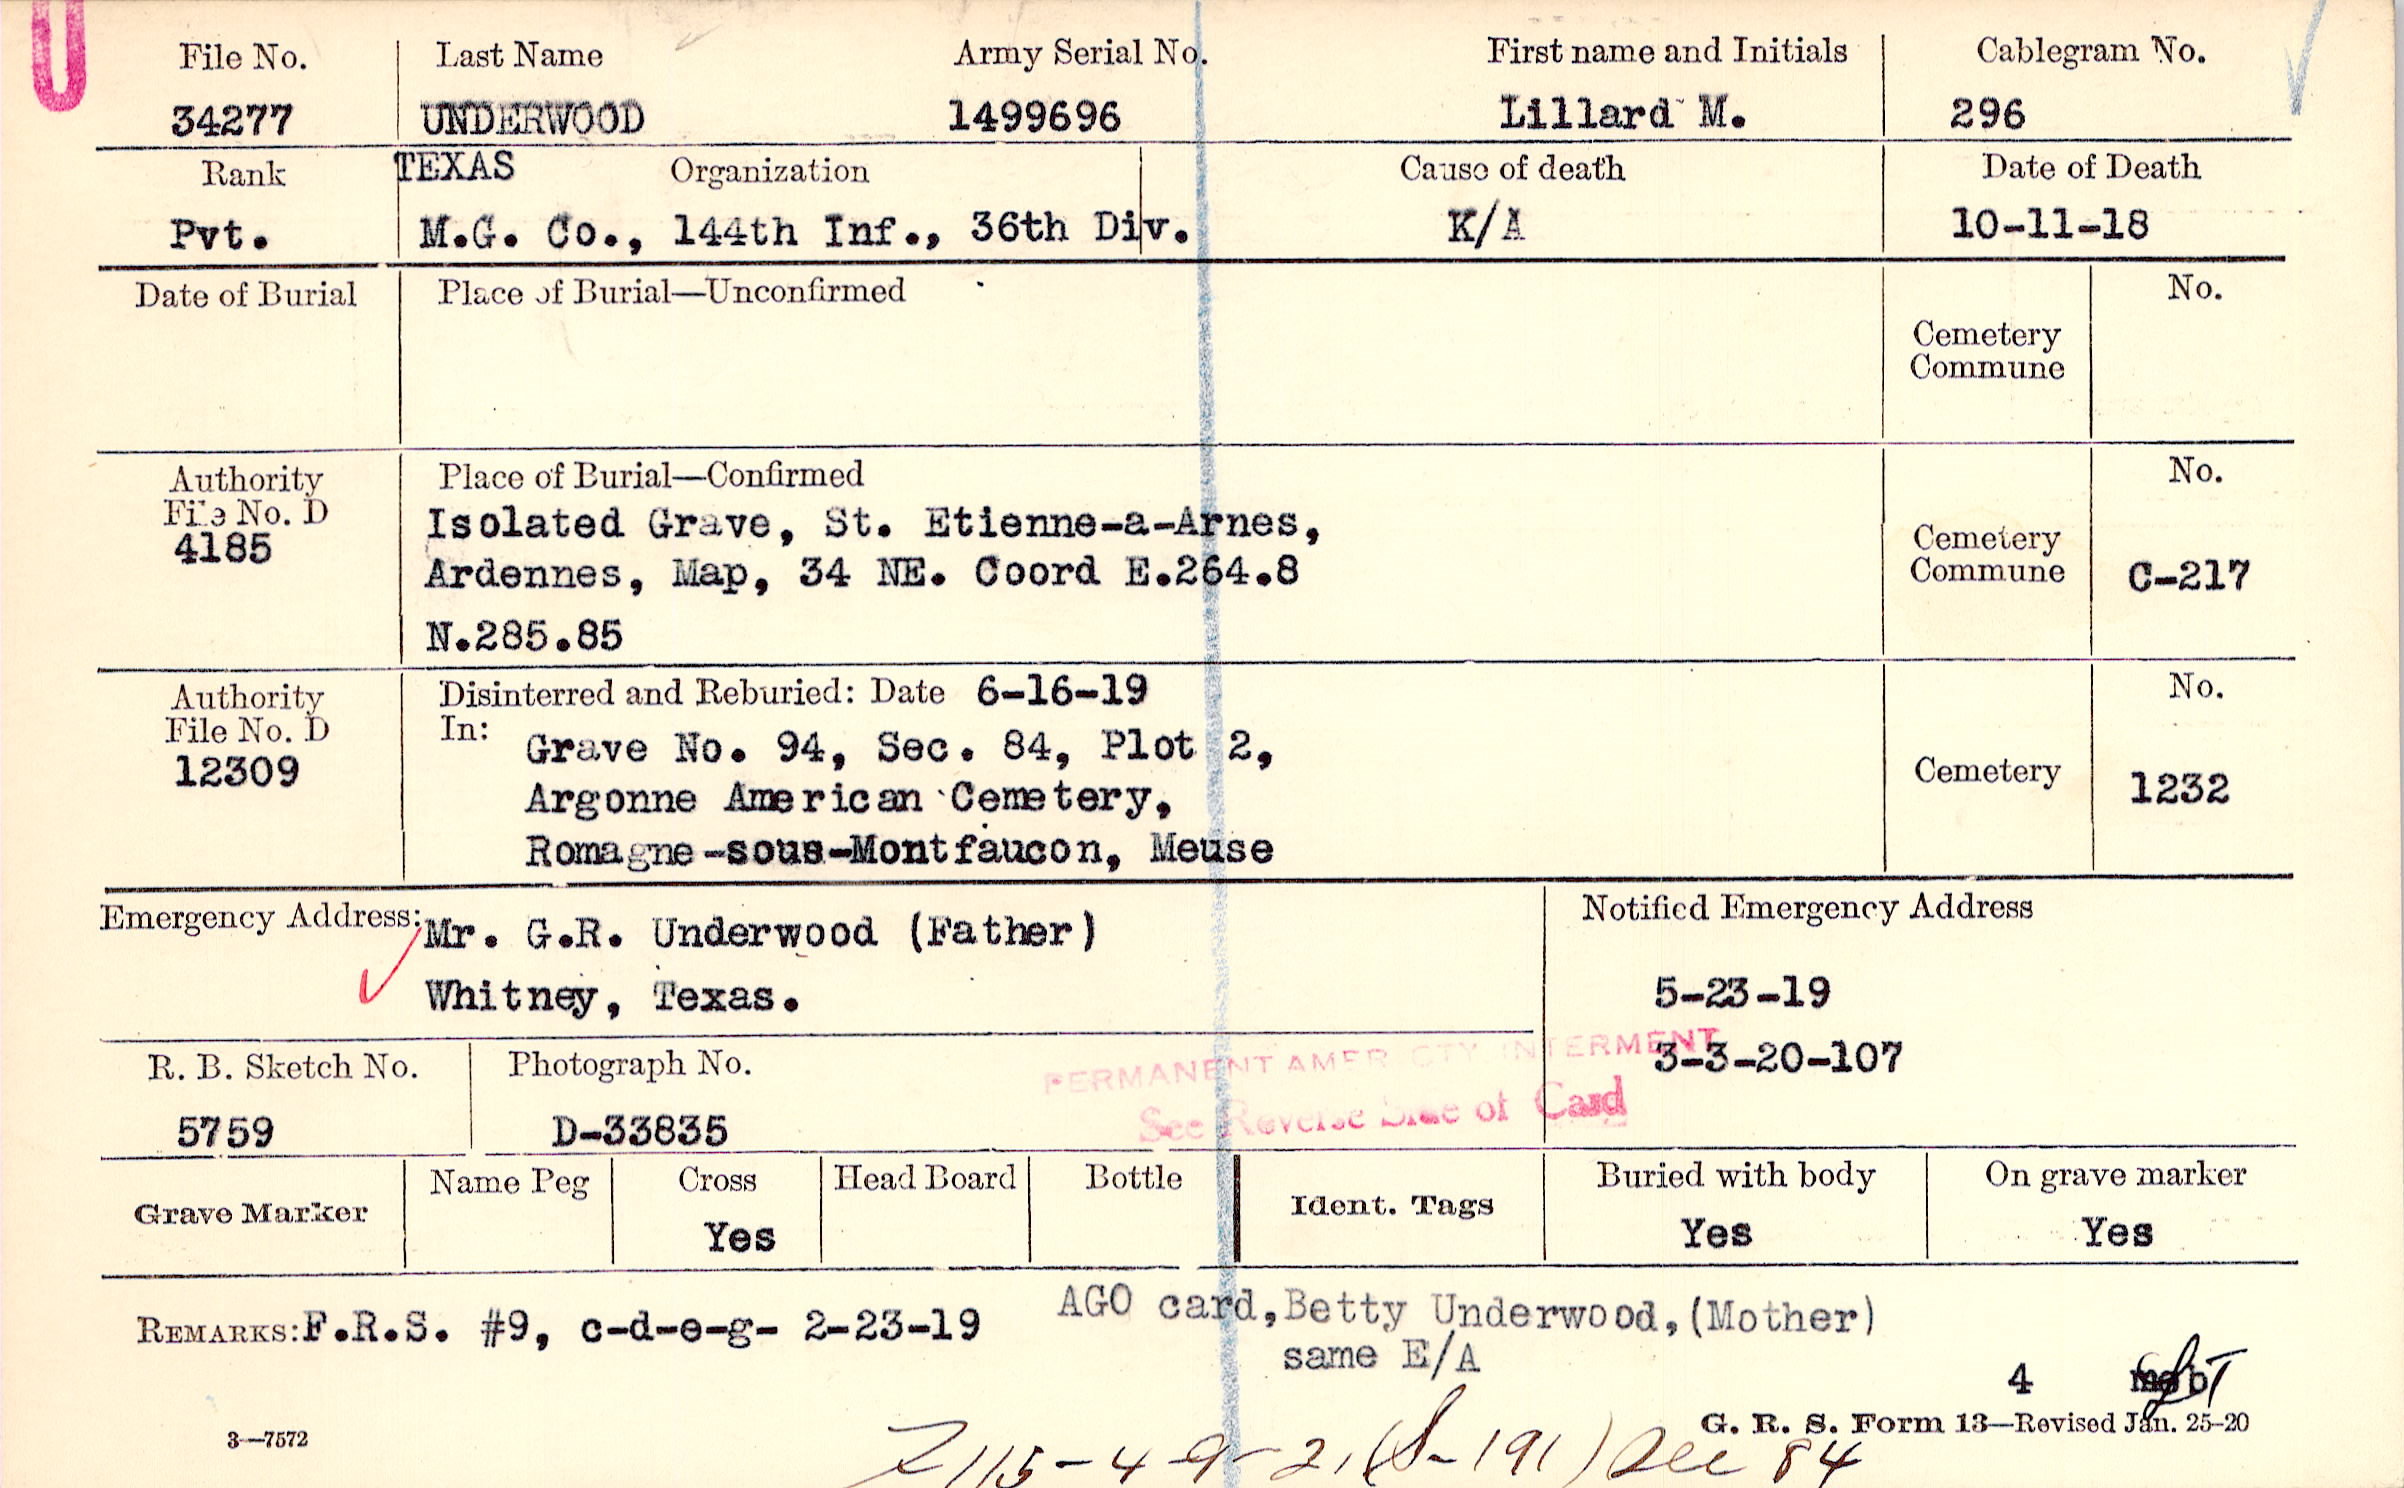 U
File No. Last Name Army Serial No. First name and Initials Cablegram No.
34277 UNDERWOOD 1499696 Lillard M. 296
Rank TEXAS Organization Cause of death Date of Death
Pvt. M.G. Co., 144th Inf., 36th Div. K/A 10-11-18
Date of Burial Place of Burial—Unconfirmed No.
Cemetery
Commune
Authority Place of Burial—Confirmed No.
File No. D Isolated Grave, St. Etienne-a-Arnes,
4185 Ardennes, Map, 34 NE. Coord E.264.8
N.285.85
Cemetery
Commune C-217
Authority Disinterred and Reburied: Date 6-16-19 No.
File No. D In: Grave No. 94, Sec. 84, Plot 2,
12309 Argonne American Cemetery,
Romagne-sous-Montfaucon, Meuse
Cemetery 1232
Emergency Address: Mr. G.R. Underwood (Father)
Whitney, Texas.
Notified Emergency Address
5-23-19
3-3-20-107
R. B. Sketch No. Photograph No.
5759 D-33835
PERMANENT AMER CTY INTERMENT
See Reverse Side of Card
Grave Marker Name Peg Cross Head Board Bottle Ident. Tags Buried with body On grave marker
Yes Yes Yes
REMARKS: F.R.S. #9, c-d-e-g- 2-23-19 AGO card, Betty Underwood, (Mother)
same E/A
4
3—7572 G. R. S. Form 13—Revised Jan. 25-20
4-9-21 (S-191) Sec 84